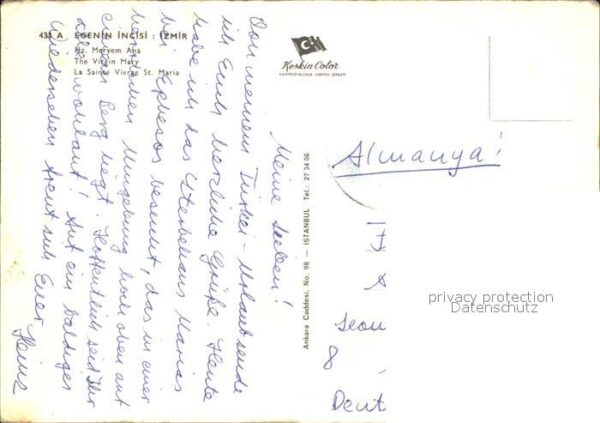 433 A EGENİN İNCİSİ : İZMİR
Hz. Meryem Ana
The Virgin Mary
La Sainte Vierge St. Maria
Keskin Color
KARTPOSTALCILIK LİMİTED ŞİRKETİ
Ankara Caddesi, No. 98 — İSTANBUL Tel.: 27 34 06
Meine Lieben!
Von meinem Türkei-Urlaub sende
ich Euch herzliche Grüße. Heute
habe ich das Sterbehaus Marias
bei Ephesos besucht, das in einer
herrlichen Umgebung hoch oben auf
einem Berg liegt. Hoffentlich seid Ihr
alle wohlauf! Auf ein baldiges
Wiedersehen freut sich Euer
Heinz
Almanya!
8
Deut
privacy protection
Datenschutz